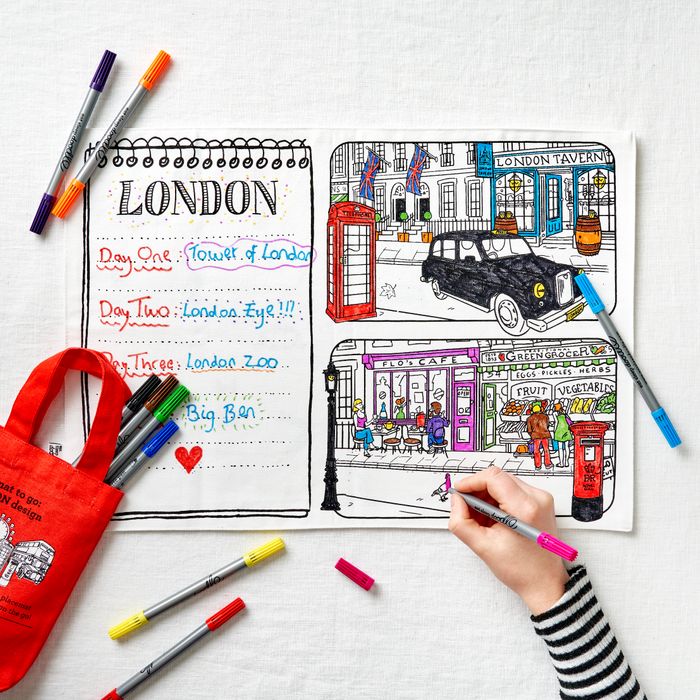 LONDON
Day One : Tower of London
Day Two : London Eye!!!
Day Three : London Zoo
Big Ben
LONDON TAVERN
TELEPHONE
FLO'S CAFE
GREENGROCER
EGGS · PICKLES · HERBS
FRUIT
VEGETABLES
mat to go:
design
placemat
on the go!